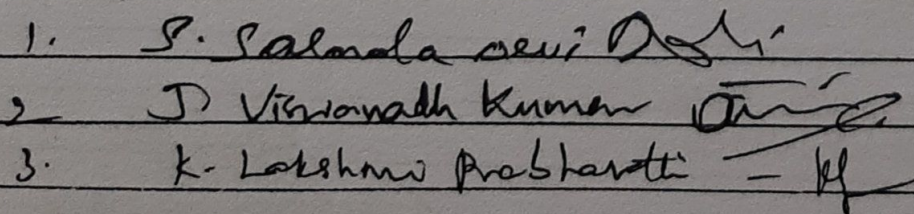 1. S. Salmola Devi
2 J Viswanadh Kumar
3. K. Lakshmi Prabhavathi -